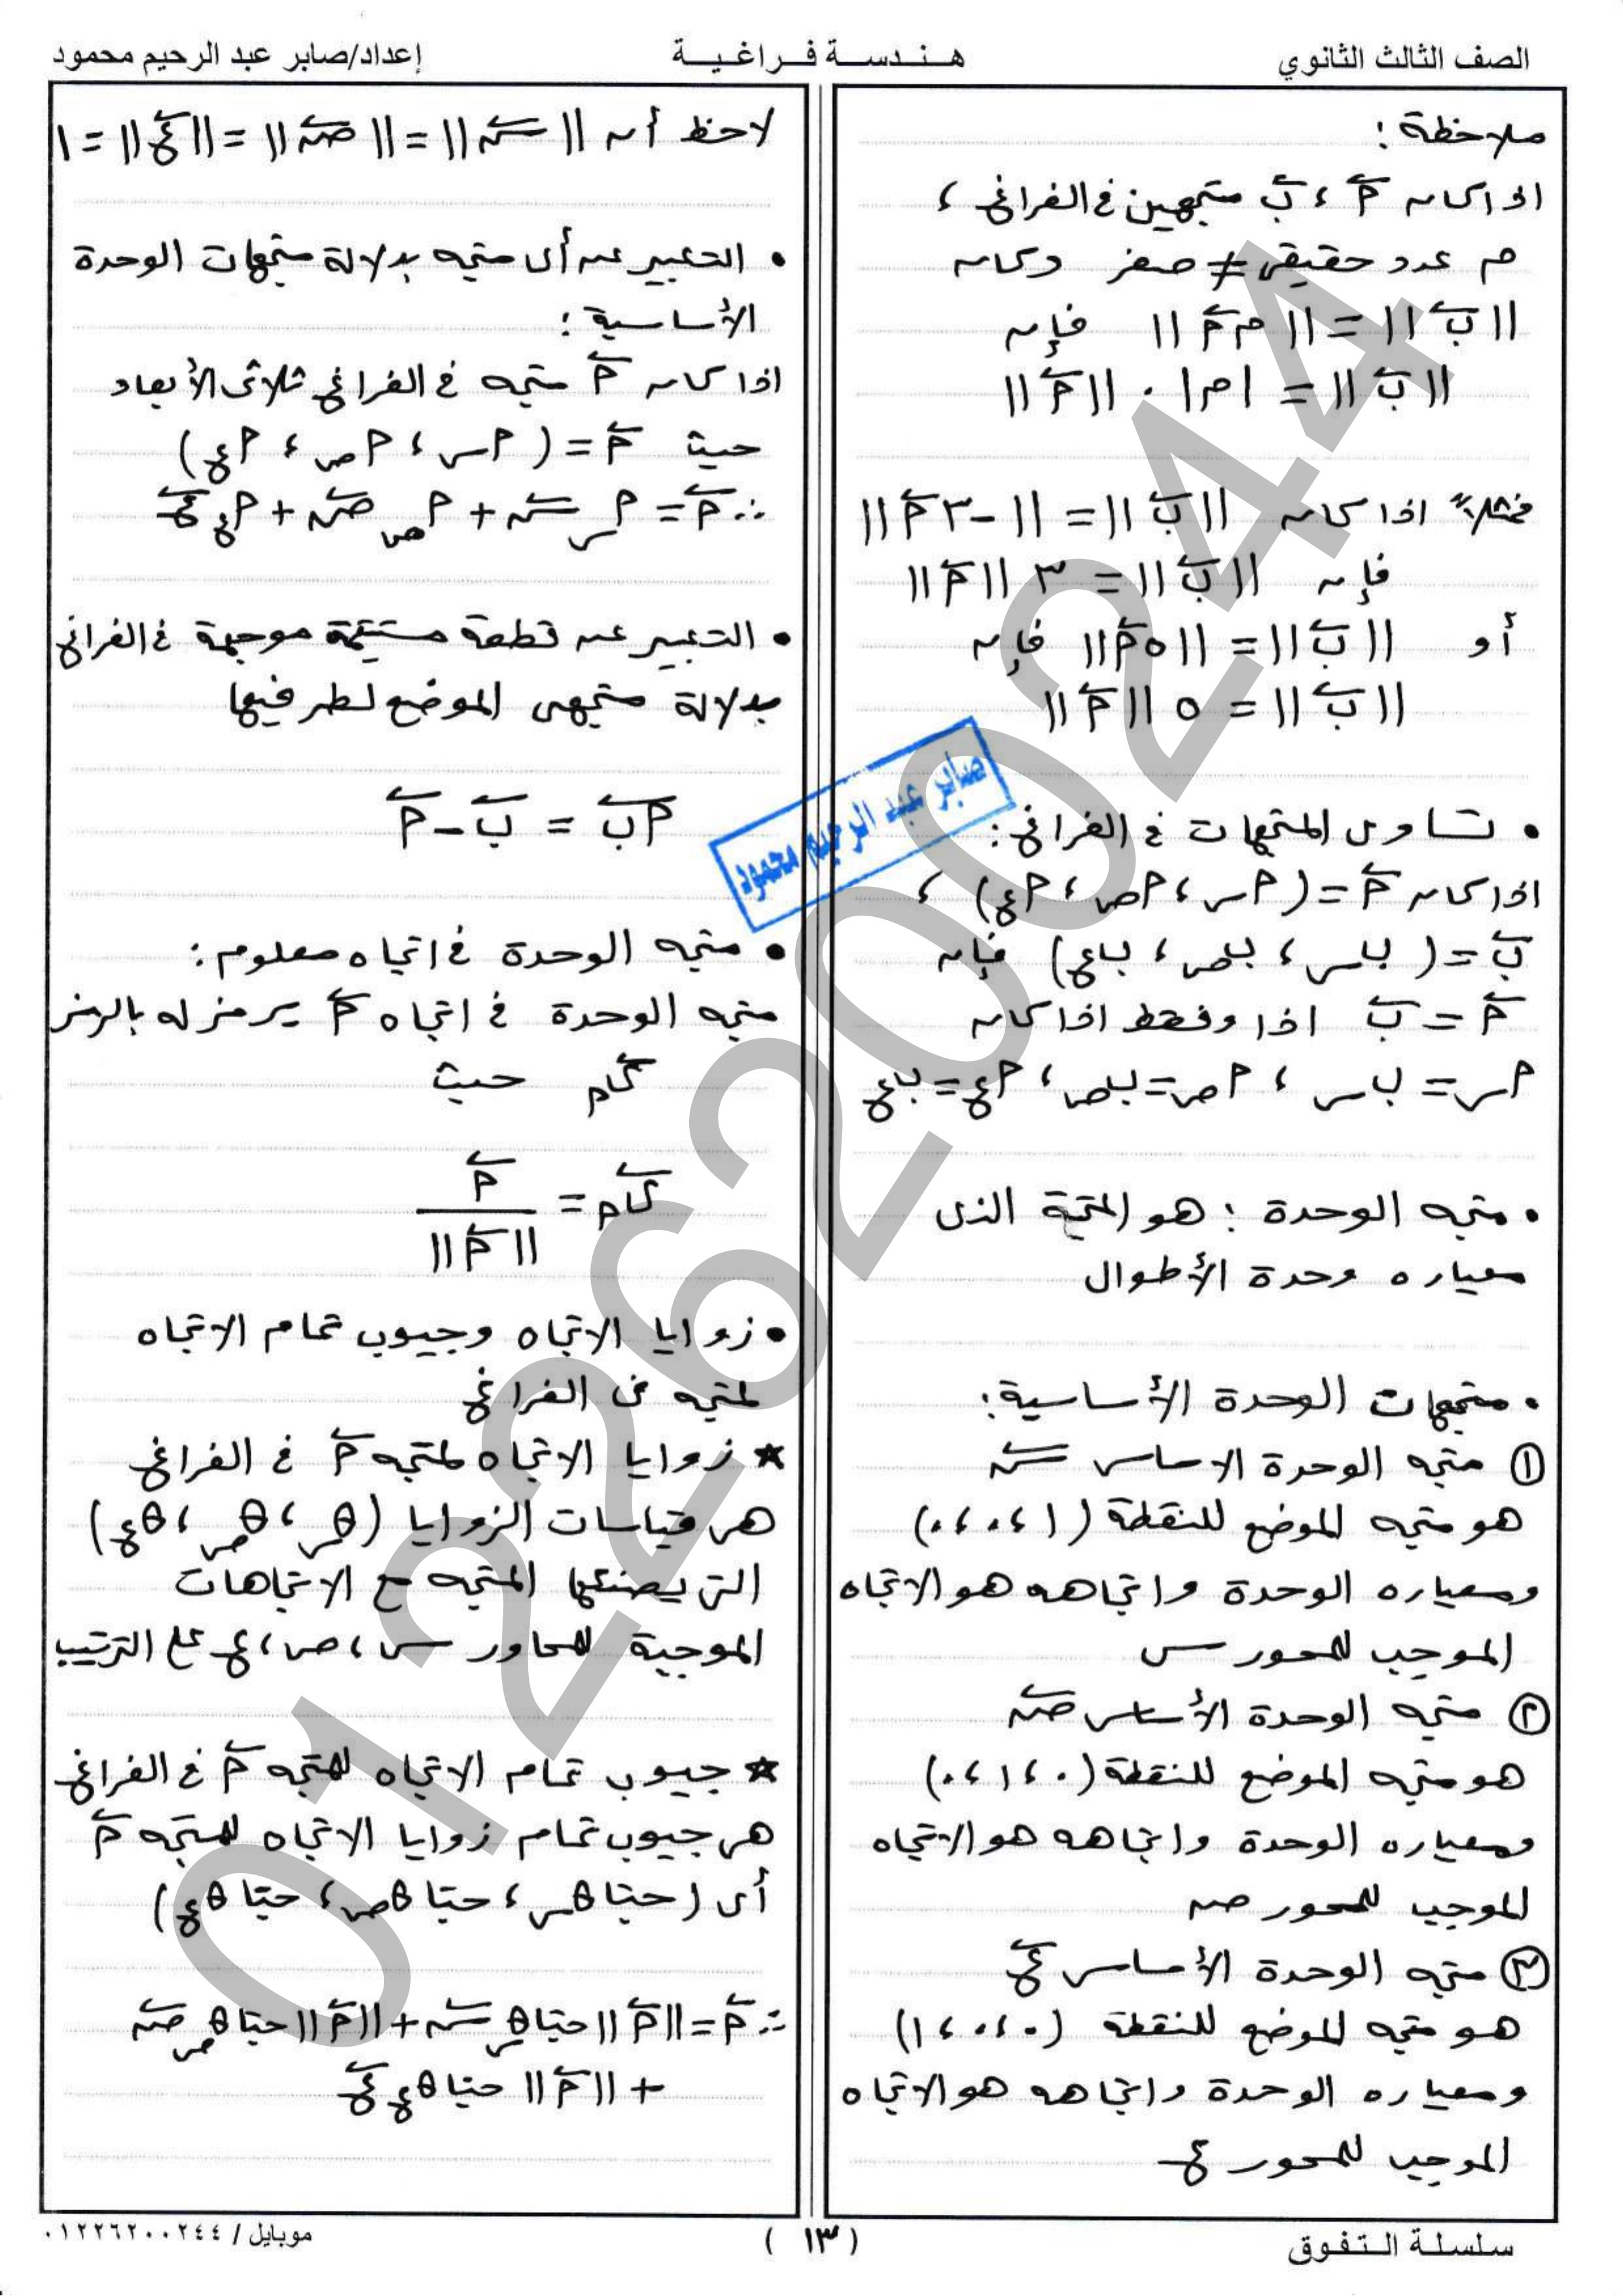 الصف الثالث الثانوي
هندسة فراغية
إعداد/صابر عبد الرحيم محمود
ملاحظة :
اذا كان أ⃖ ، ب⃖ متجهين فى الفراغ ،
م عدد حقيقى ≠ صفر وكان
||ب⃖|| = ||م أ⃖|| فإن
||ب⃖|| = |م| . ||أ⃖||
فمثلاً اذا كان ||ب⃖|| = ||-٣ أ⃖||
فإن ||ب⃖|| = ٣ ||أ⃖||
أو ||ب⃖|| = ||٥ أ⃖|| فإن
||ب⃖|| = ٥ ||أ⃖||
• تساوى المتجهات فى الفراغ :
اذا كان أ⃖ = (أس ، أص ، أع) ،
ب⃖ = (بس ، بص ، بع) فإن
أ⃖ = ب⃖ اذا وفقط اذا كان
أس = بس ، أص = بص ، أع = بع
• متجه الوحدة : هو المتجة الذى
معياره وحدة الأطوال
• متجهات الوحدة الأساسية :
① متجه الوحدة الاساسى س⃖
هو متجه الموضع للنقطة (١ ، ٠ ، ٠)
ومعياره الوحدة واتجاهه هو الاتجاه
الموجب للمحور س
② متجه الوحدة الأساسى ص⃖
هو متجه الموضع للنقطة (٠ ، ١ ، ٠)
ومعياره الوحدة واتجاهه هو الاتجاه
الموجب للمحور ص
③ متجه الوحدة الأساسى ع⃖
هو متجه الموضع للنقطة (٠ ، ٠ ، ١)
ومعياره الوحدة واتجاهه هو الاتجاه
الموجب للمحور ع
لاحظ أن ||س⃖|| = ||ص⃖|| = ||ع⃖|| = ١
• التعبير عن أى متجه بدلالة متجهات الوحدة
الأساسية :
اذا كان أ⃖ متجه فى الفراغ ثلاثى الأبعاد
حيث أ⃖ = (أس ، أص ، أع)
∴ أ⃖ = أس س⃖ + أص ص⃖ + أع ع⃖
• التعبير عن قطعة مستقيمة موجهة فى الفراغ
بدلالة متجهى الموضع لطرفيها
أب⃖ = ب⃖ - أ⃖
• متجه الوحدة فى اتجاه معلوم :
متجه الوحدة فى اتجاه أ⃖ يرمز له بالرمز
ى⃖أ حيث
ى⃖أ = أ⃖ / ||أ⃖||
• زوايا الاتجاه وجيوب تمام الاتجاه
لمتجه فى الفراغ
★ زوايا الاتجاه لمتجه أ⃖ فى الفراغ
هى قياسات الزوايا (θس ، θص ، θع)
التى يصنعها المتجه مع الاتجاهات
الموجبة للمحاور س ، ص ، ع على الترتيب
★ جيوب تمام الاتجاه للمتجه أ⃖ فى الفراغ
هى جيوب تمام زوايا الاتجاه للمتجه أ⃖
أى (حتا θس ، حتا θص ، حتا θع)
∴ أ⃖ = ||أ⃖|| حتا θس س⃖ + ||أ⃖|| حتا θص ص⃖
+ ||أ⃖|| حتا θع ع⃖
صابر عبد الرحيم محمود
01226200244
سلسلة التفوق
(١٣)
موبايل / ٠١٢٢٦٢٠٠٢٤٤